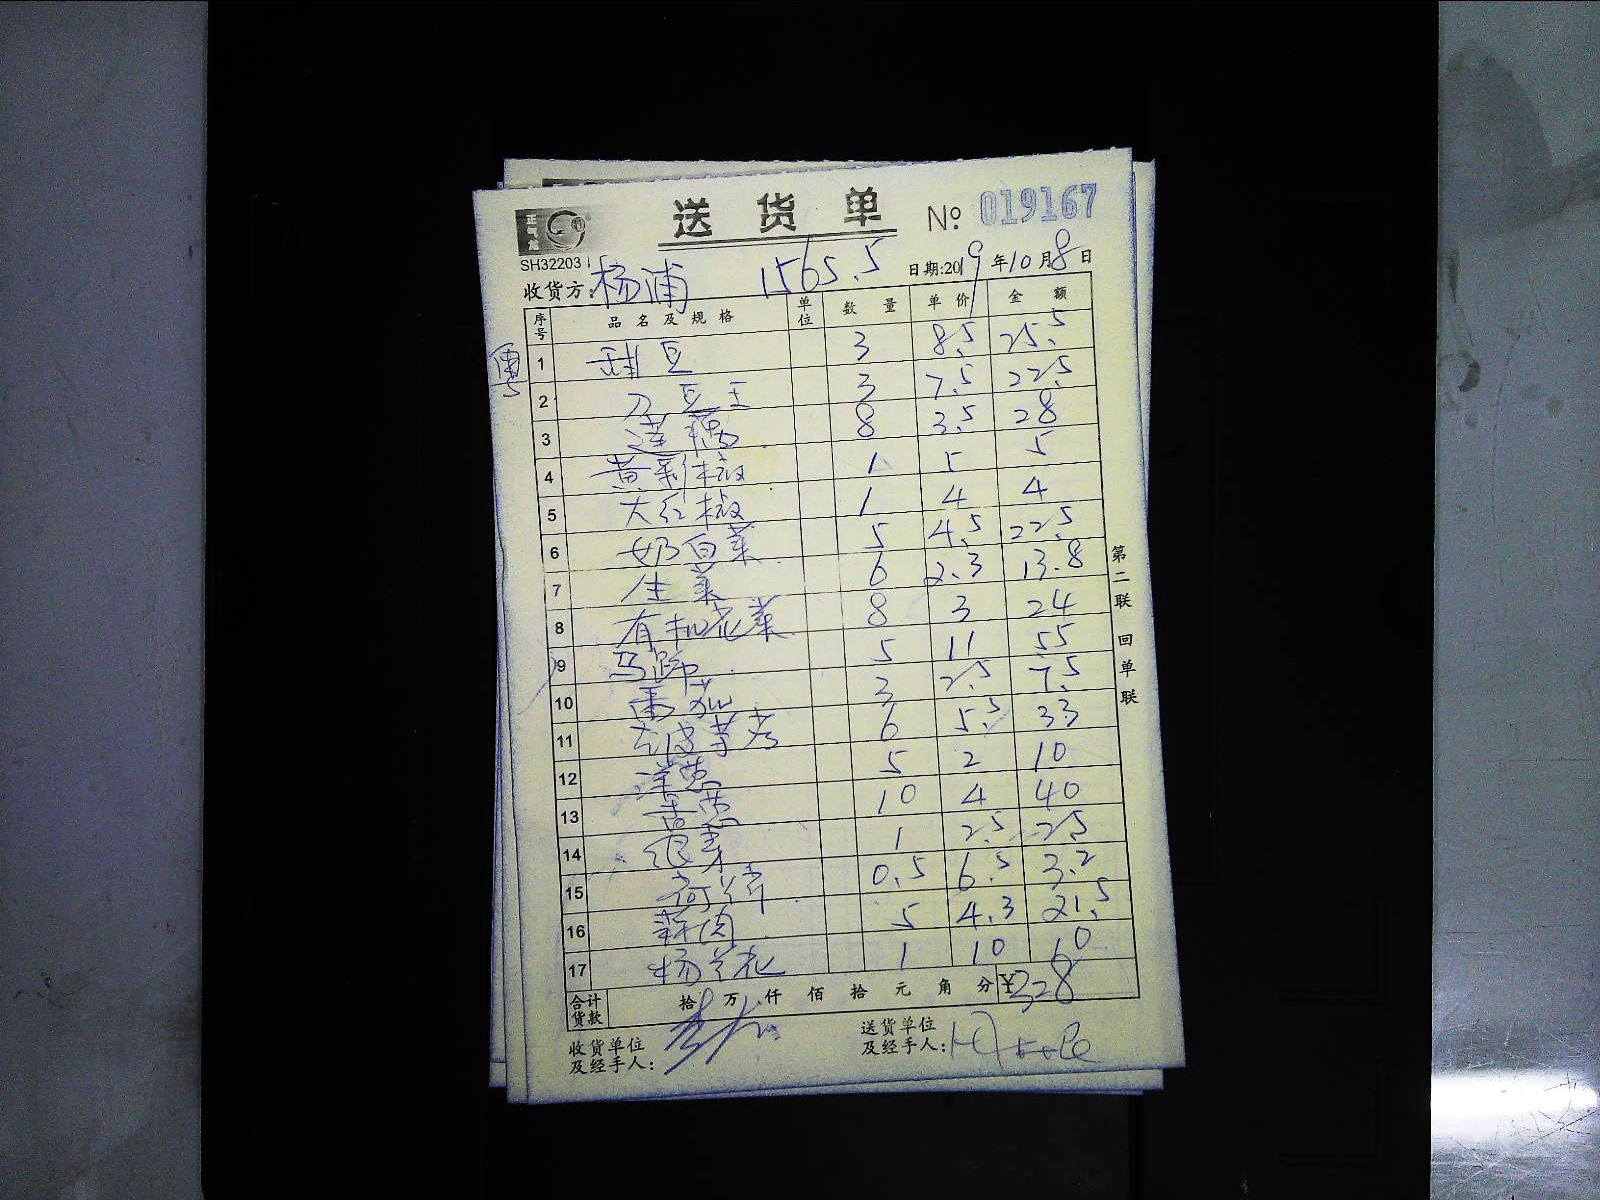 正气龙
SH32203
送货单 № 019167
收货方: 杨浦 1565.5 日期:2019年10月8日
序号 品名及规格 单位 数量 单价 金额
1 甜豆 3 8.5 25.5
2 刀豆王 3 7.5 22.5
3 莲藕 8 3.5 28
4 黄彩椒 1 5 5
5 大红椒 1 4 4
6 奶白菜 5 4.5 22.5
7 生菜 6 2.3 13.8
8 有机花菜 8 3 24
9 马蹄 5 11 55
10 番茄 3 2.5 7.5
11 去皮茅考 6 5.5 33
12 洋葱 5 2 10
13 香葱 10 4 40
14 银芽 1 2.5 2.5
15 0.5 6.5 3.2
16 5 4.3 21.5
17 杨兰花 1 10 10
合计货款 拾 万 仟 佰 拾 元 角 分 ¥328
收货单位及经手人:
送货单位及经手人:
第二联 回单联